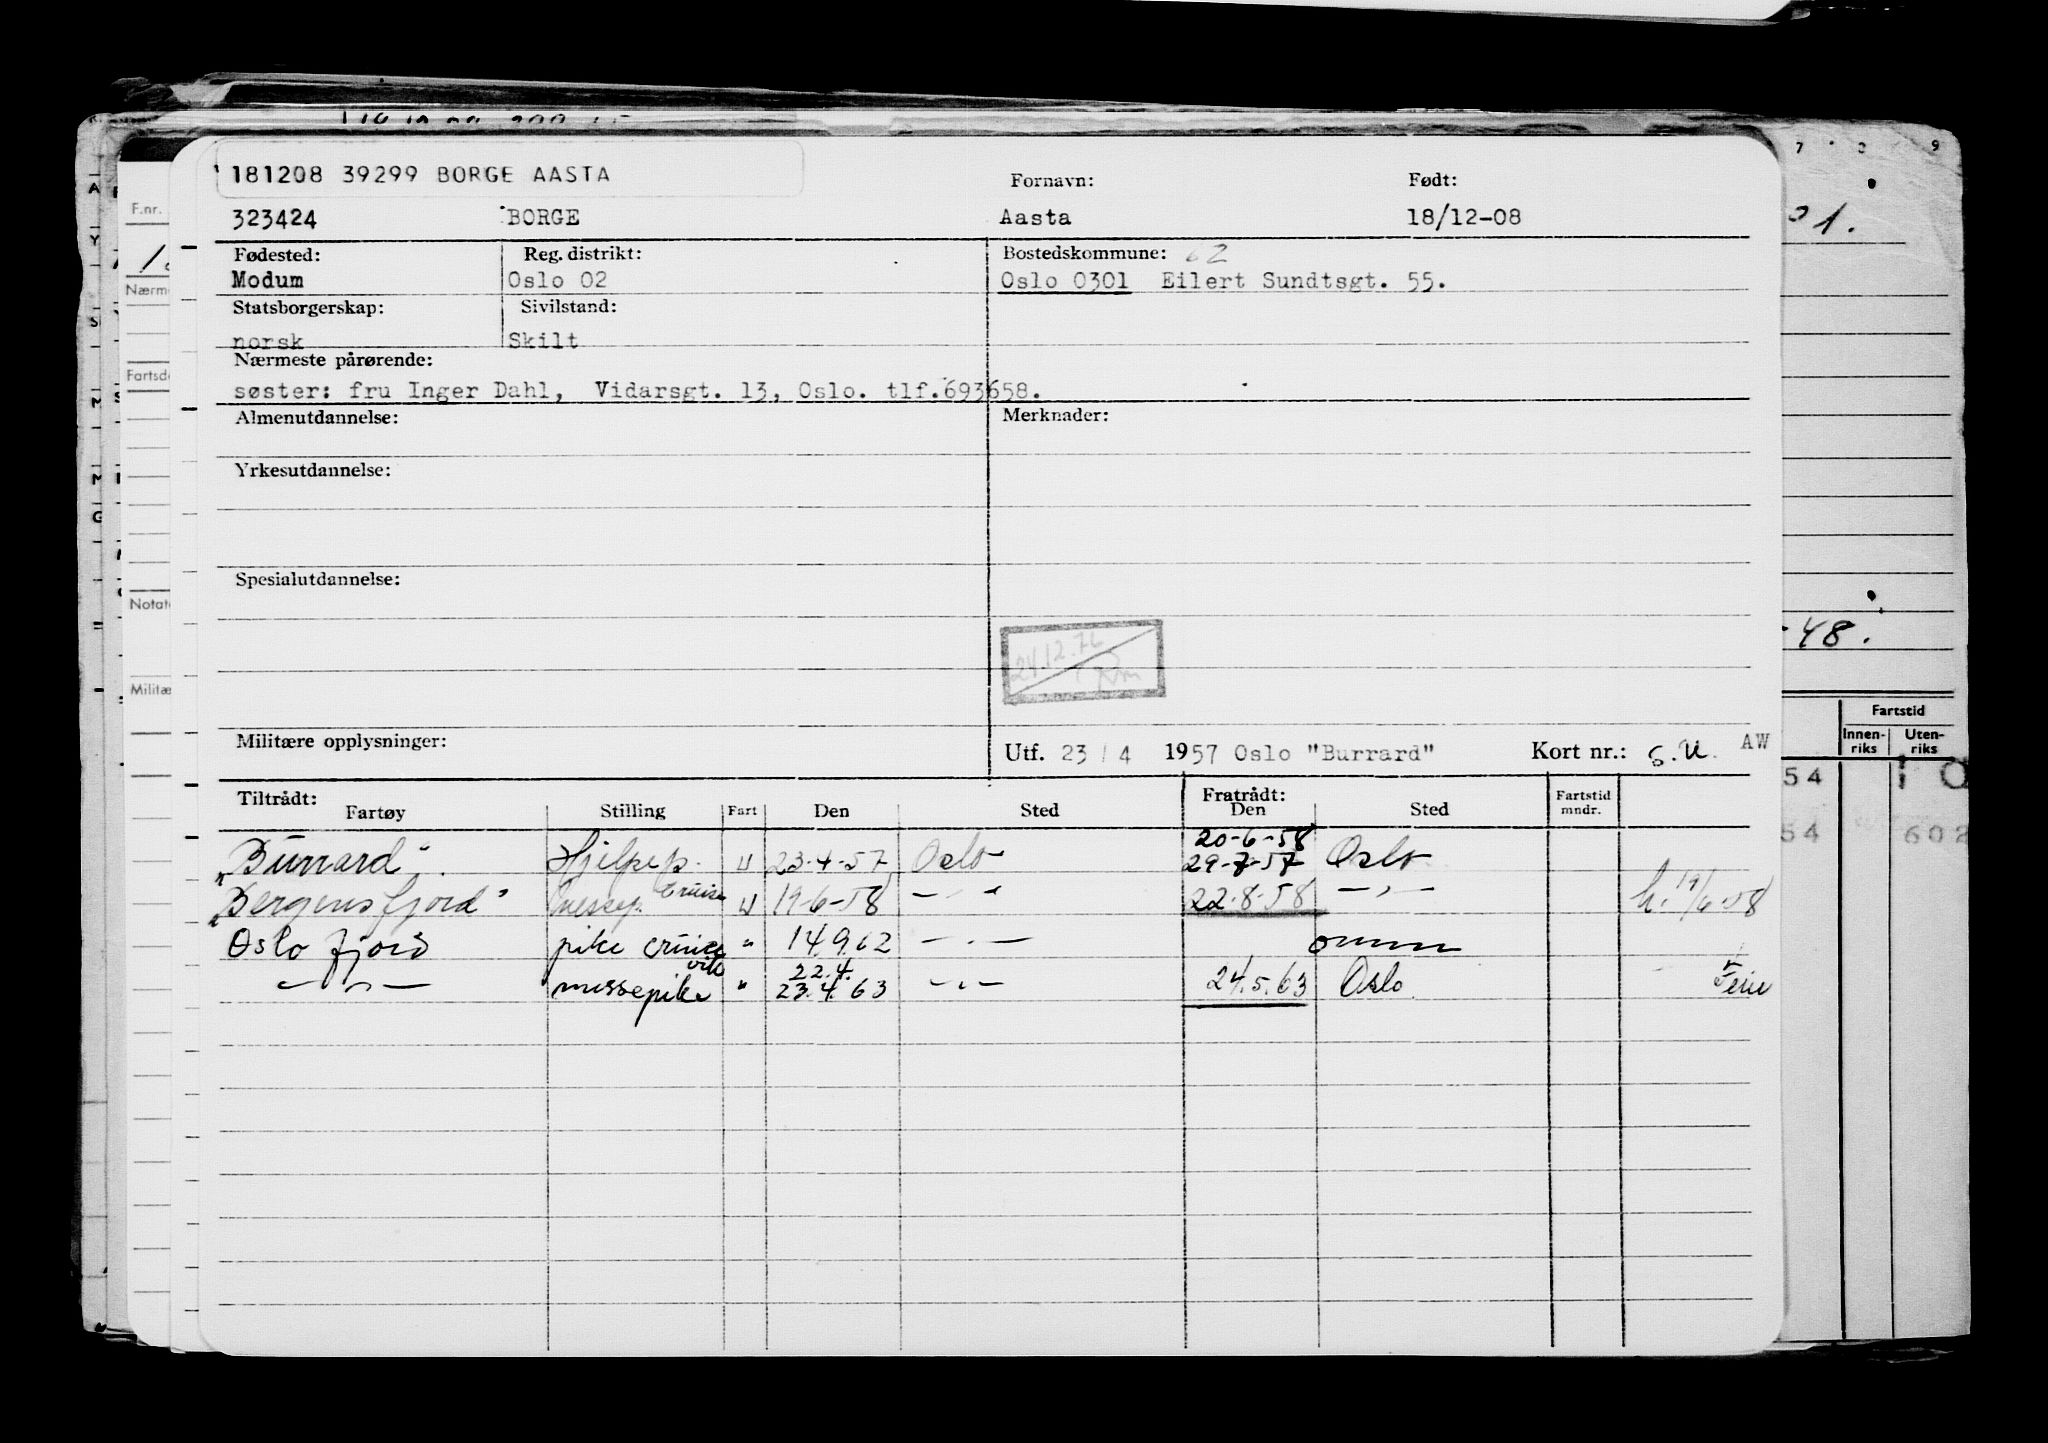 181208 39299 BORGE AASTA
Fornavn: Født:
323424 BORGE Aasta 18/12-08
Fødested: Reg. distrikt: Bostedskommune: 62
Modum Oslo 02 Oslo 0301 Eilert Sundtsgt. 55.
Statsborgerskap: Sivilstand:
norsk Skilt
Nærmeste pårørende:
søster: fru Inger Dahl, Vidarsgt. 13, Oslo. tlf.693658.
Almenutdannelse: Merknader:
Yrkesutdannelse:
Spesialutdannelse:
24.12.76
Militære opplysninger: Utf. 23/4 1957 Oslo "Burrard" Kort nr.: AW
Tiltrådt: Fratrådt:
Fartøy Stilling Fart Den Sted Den Sted Fartstid mndr.
20-6-58
"Burrard" Hjelpep. U 23-4-57 Oslo 29-7-57 Oslo
"Bergensfjord" messep. cruise U 19-6-58 — " — 22-8-58 — " — h. 19/6-58
Oslofjord pike cruise " 14.9.62 — " —
vik 22.4.
— " — messepike " 23.4.63 — " — 24.5.63 Oslo Ferie
F.nr.
Nærm
Fartsd
Notat
Militæ
7 9
01.
-48.
Fartstid
Innen-riks Uten-riks
54 10
54 602